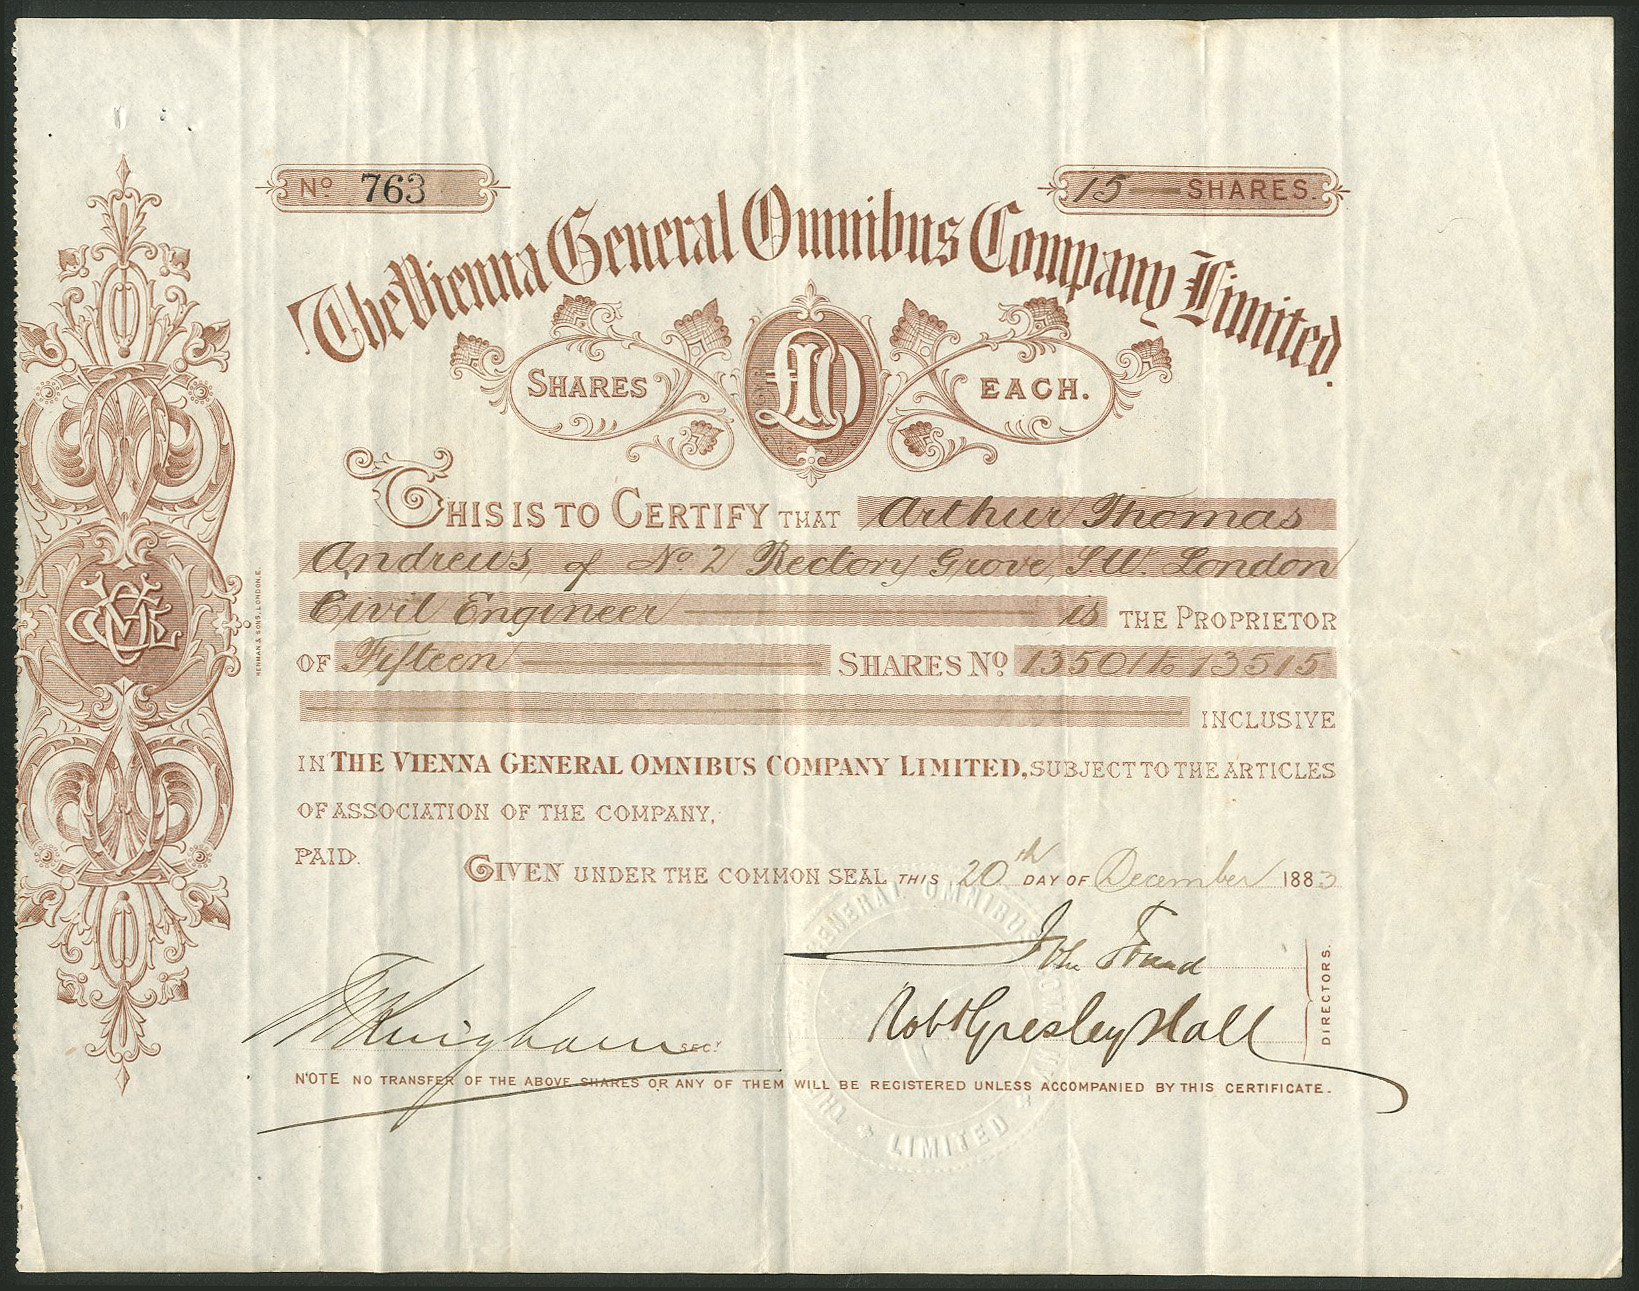 No. 763
15 — SHARES.
The Vienna General Omnibus Company Limited.
SHARES £10 EACH.
THIS IS TO CERTIFY THAT Arthur Thomas
Andrews, of No. 2 Rectory Grove, S.W. London
Civil Engineer — is THE PROPRIETOR
OF Fifteen — SHARES No. 13501 to 13515
INCLUSIVE
IN THE VIENNA GENERAL OMNIBUS COMPANY LIMITED, SUBJECT TO THE ARTICLES
OF ASSOCIATION OF THE COMPANY,
PAID.
GIVEN UNDER THE COMMON SEAL THIS 20th DAY OF December 1883
GENERAL OMNIBUS
LIMITED
John
Robt Gresley Hall
DIRECTORS.
SECY
NOTE NO TRANSFER OF THE ABOVE SHARES OR ANY OF THEM WILL BE REGISTERED UNLESS ACCOMPANIED BY THIS CERTIFICATE.
& SONS, LONDON, E.